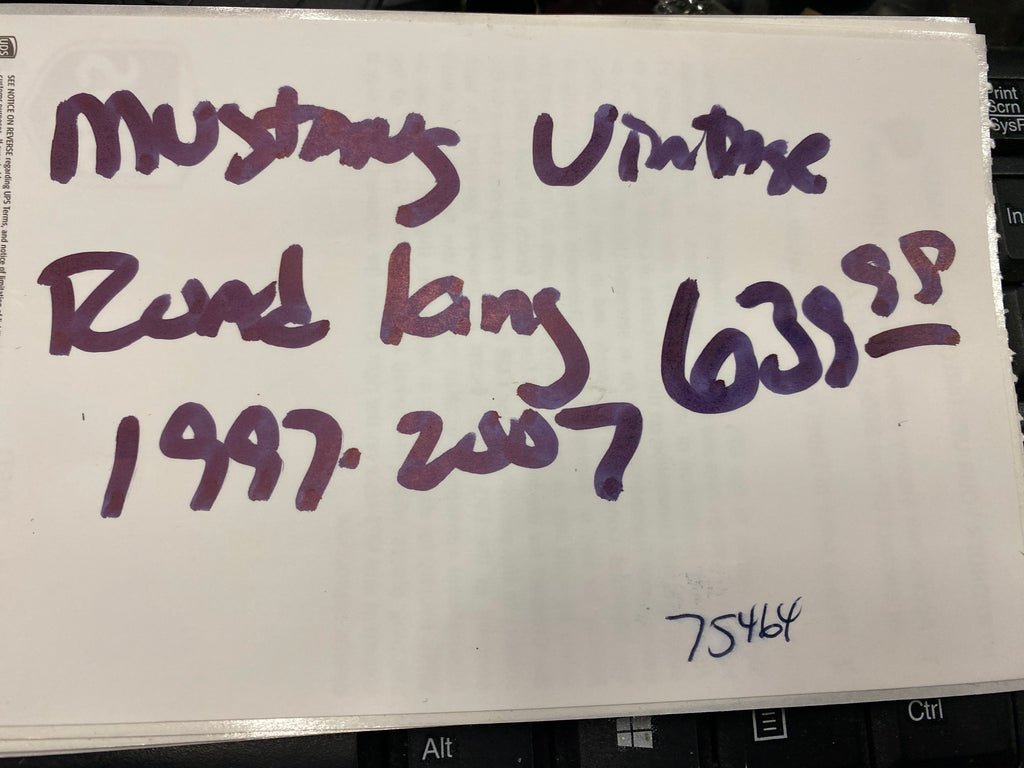 Mustang Vintage
Road king 639 98
1997-2007
75464
UPS
SEE NOTICE ON REVERSE regarding UPS Terms, and notice of limitation of
Print
Scrn
SysR
In
Alt
Ctrl